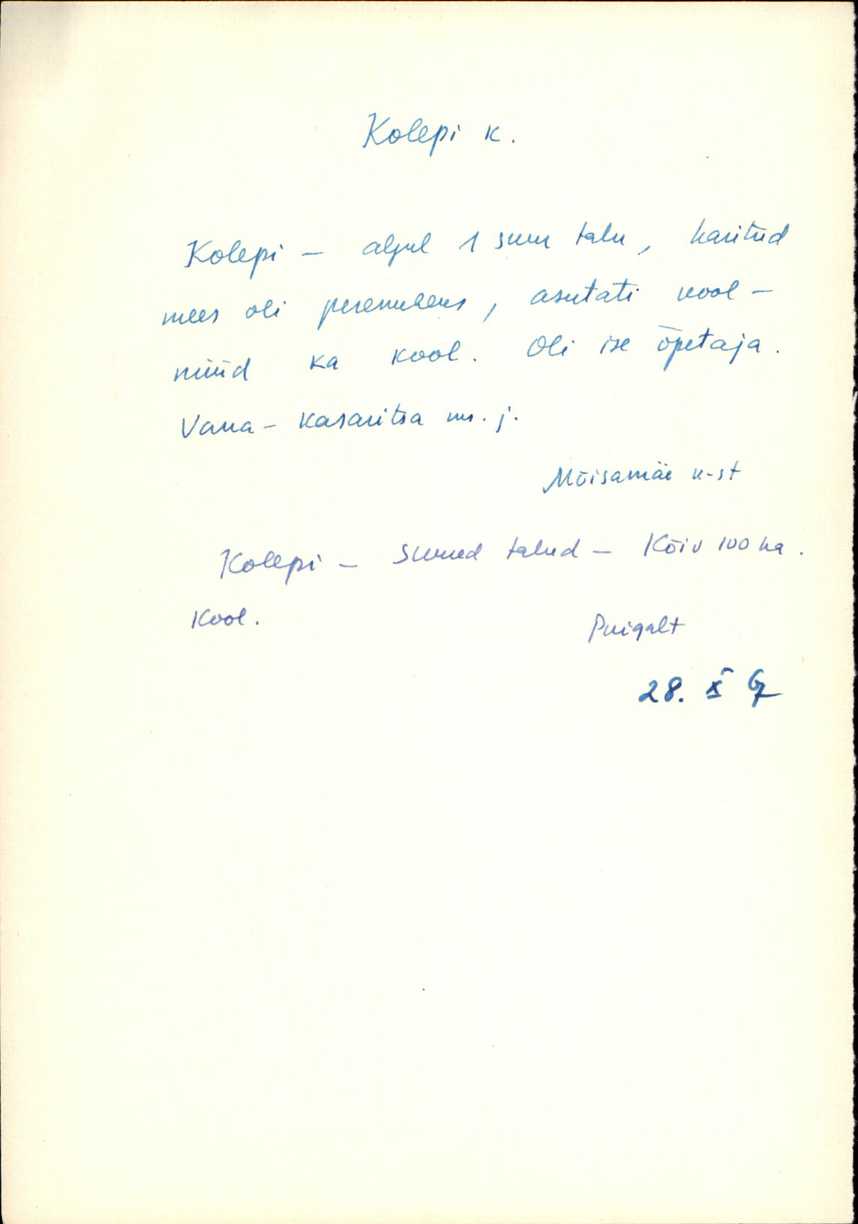 Kolepi k.
Kolepi – algul 1 suur talu, haritud
mees oli peremeheks, asutati kool –
nüüd ka kool. Oli ise õpetaja.
Vana-Kasaritsa ms. j.
Mõisamäe k-st
Kolepi – Suured talud – Kõiv 100 ha.
Kool.
Puigalt
28. X 67